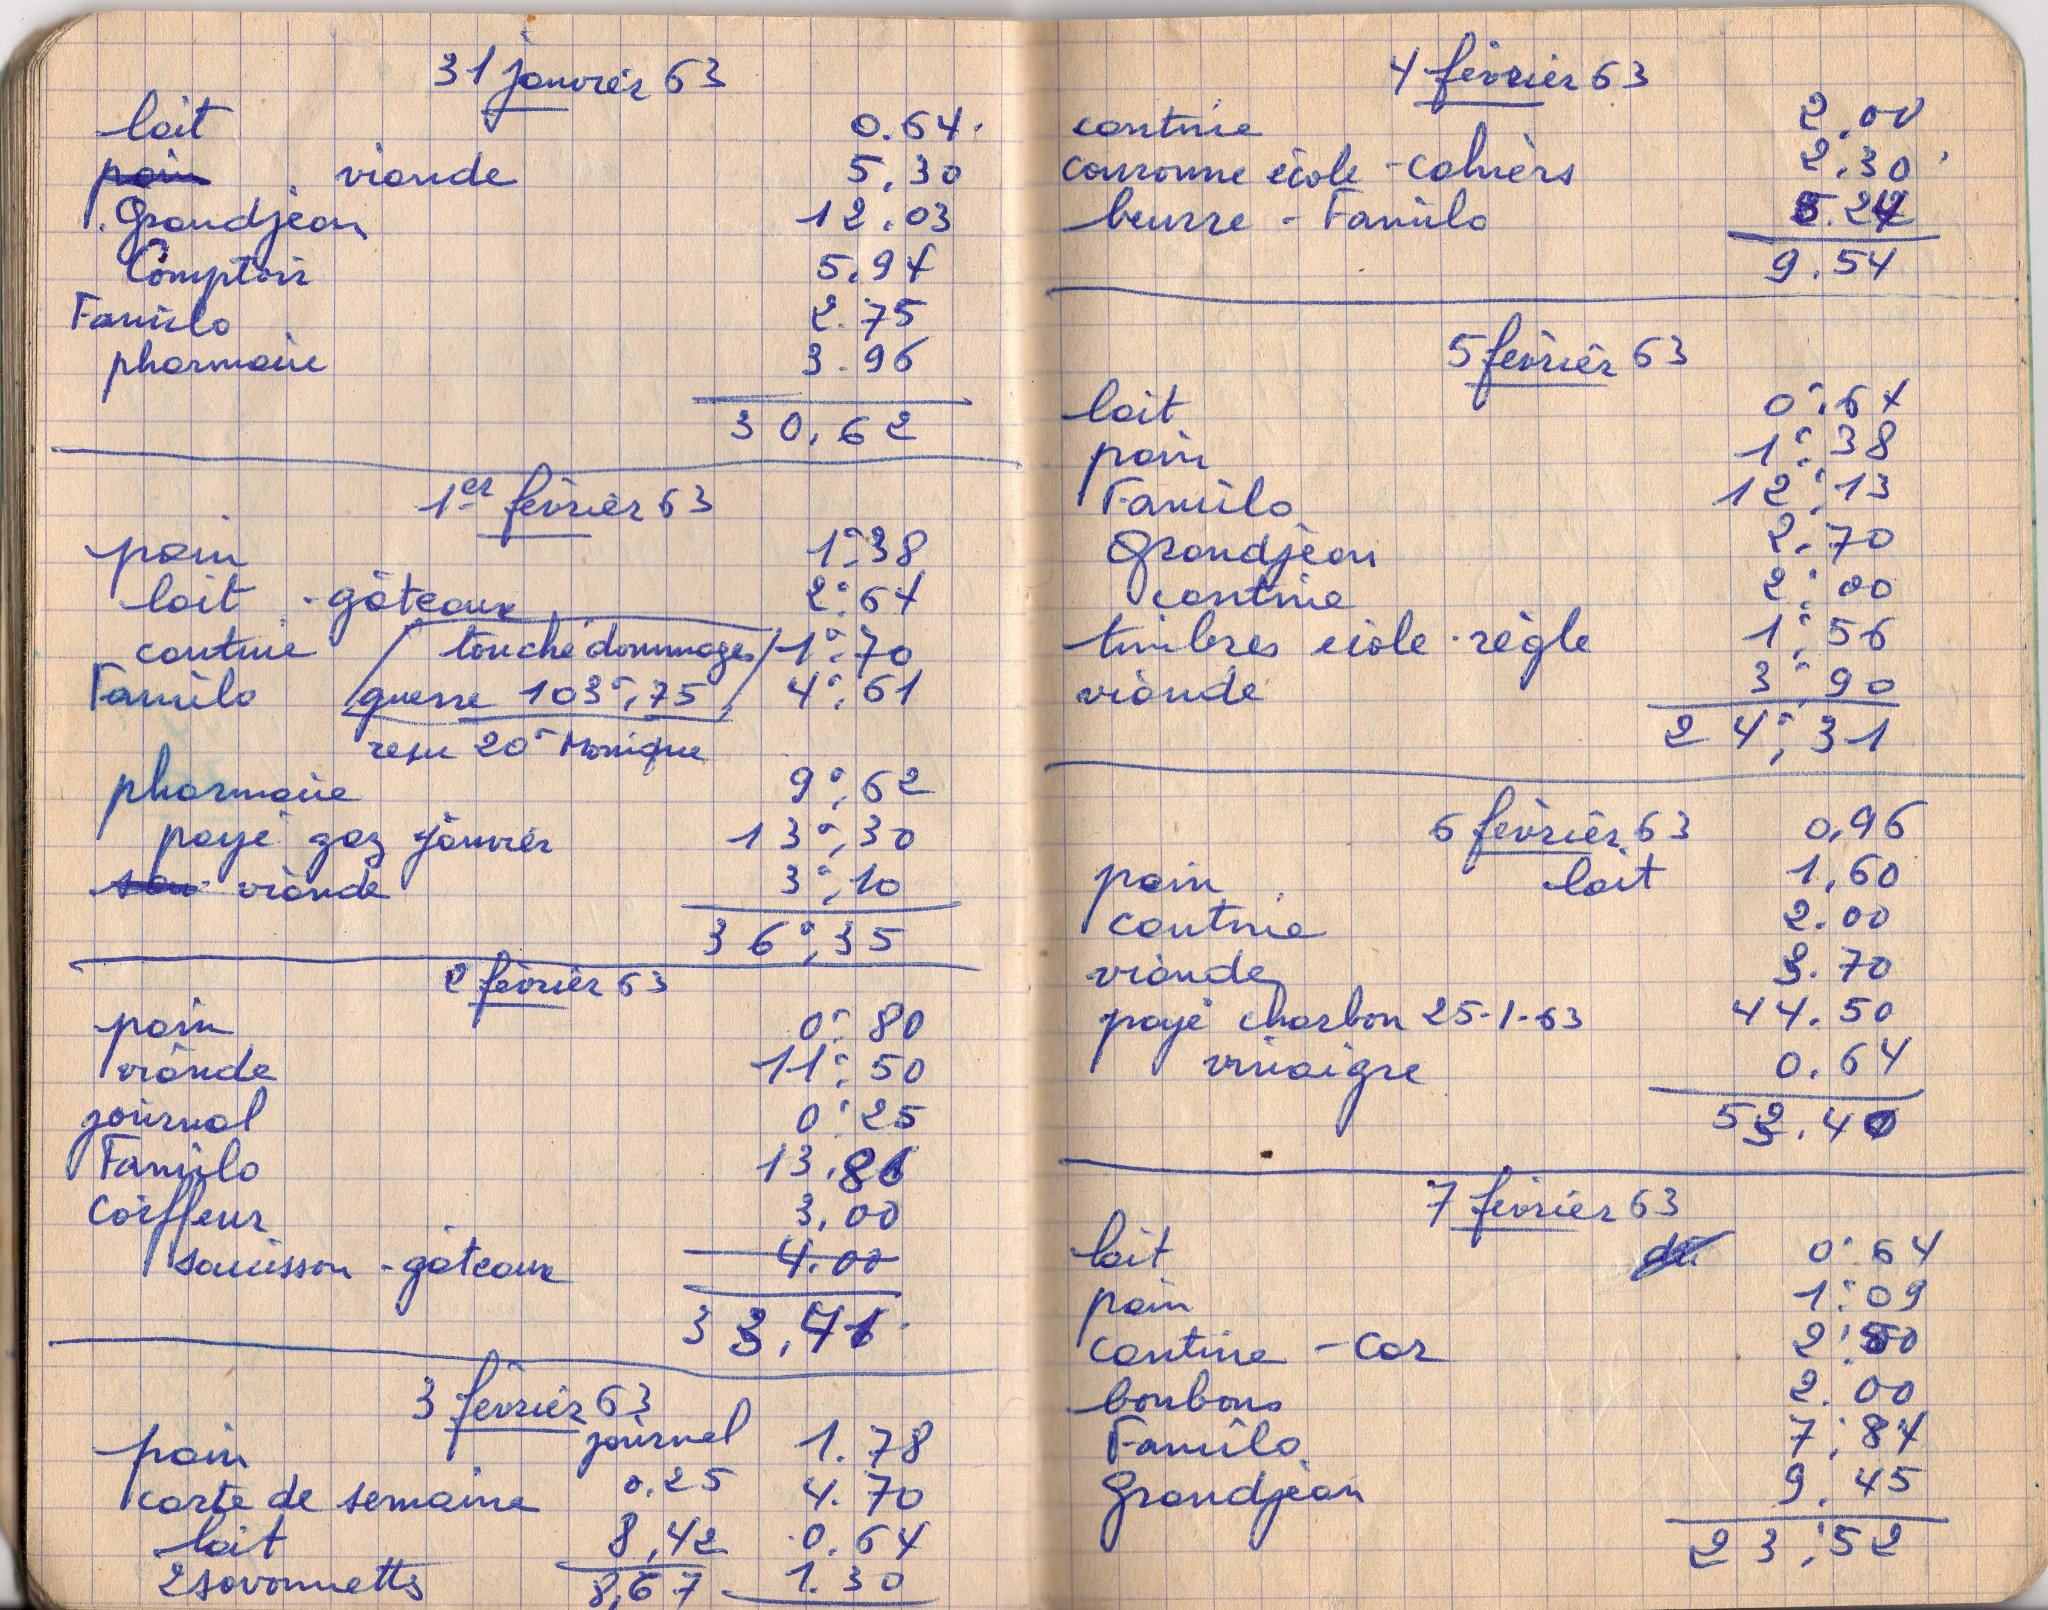 31 janvier 63
lait 0.64.
pain viande 5,30
Grandjean 12.03
Comptoir 5,94
Familo 2.75
pharmacie 3.96
30,62
1er février 63
pain 1F,38
lait - gâteaux 2F,64
cantine touché dommages 1F,70
Familo guerre 103F,75 4F,61
reçu 20F Monique
pharmacie 9F,62
payé gaz janvier 13F,30
viande 3F,10
36F,35
2 février 63
pain 0F,80
viande 11F,50
journal 0F,25
Familo 13,86
Coiffeur 3,00
saucisson - gâteaux 4.00
33,41
3 février 63
pain journal 1.78
carte de semaine 0.25 4.70
lait 8,42 0.64
2 savonnetts 8,67 1.30
4 février 63
cantine 2.00
couronne école - cahiers 2.30
beurre - Familo 5.24
9.54
5 février 63
lait 0F,64
pain 1F,38
Familo 12F,13
Grandjean 2,70
cantine 2F,00
timbres école - règle 1F,56
viande 3F,90
24F,31
6 février 63 0,96
pain lait 1,60
cantine 2.00
viande 3.70
payé charbon 25-1-63 44.50
vinaigre 0.64
53.40
7 février 63
lait dû 0F,64
pain 1F,09
cantine - car 2F,50
bonbons 2.00
Familo 7,84
Grandjean 9,45
23F,52